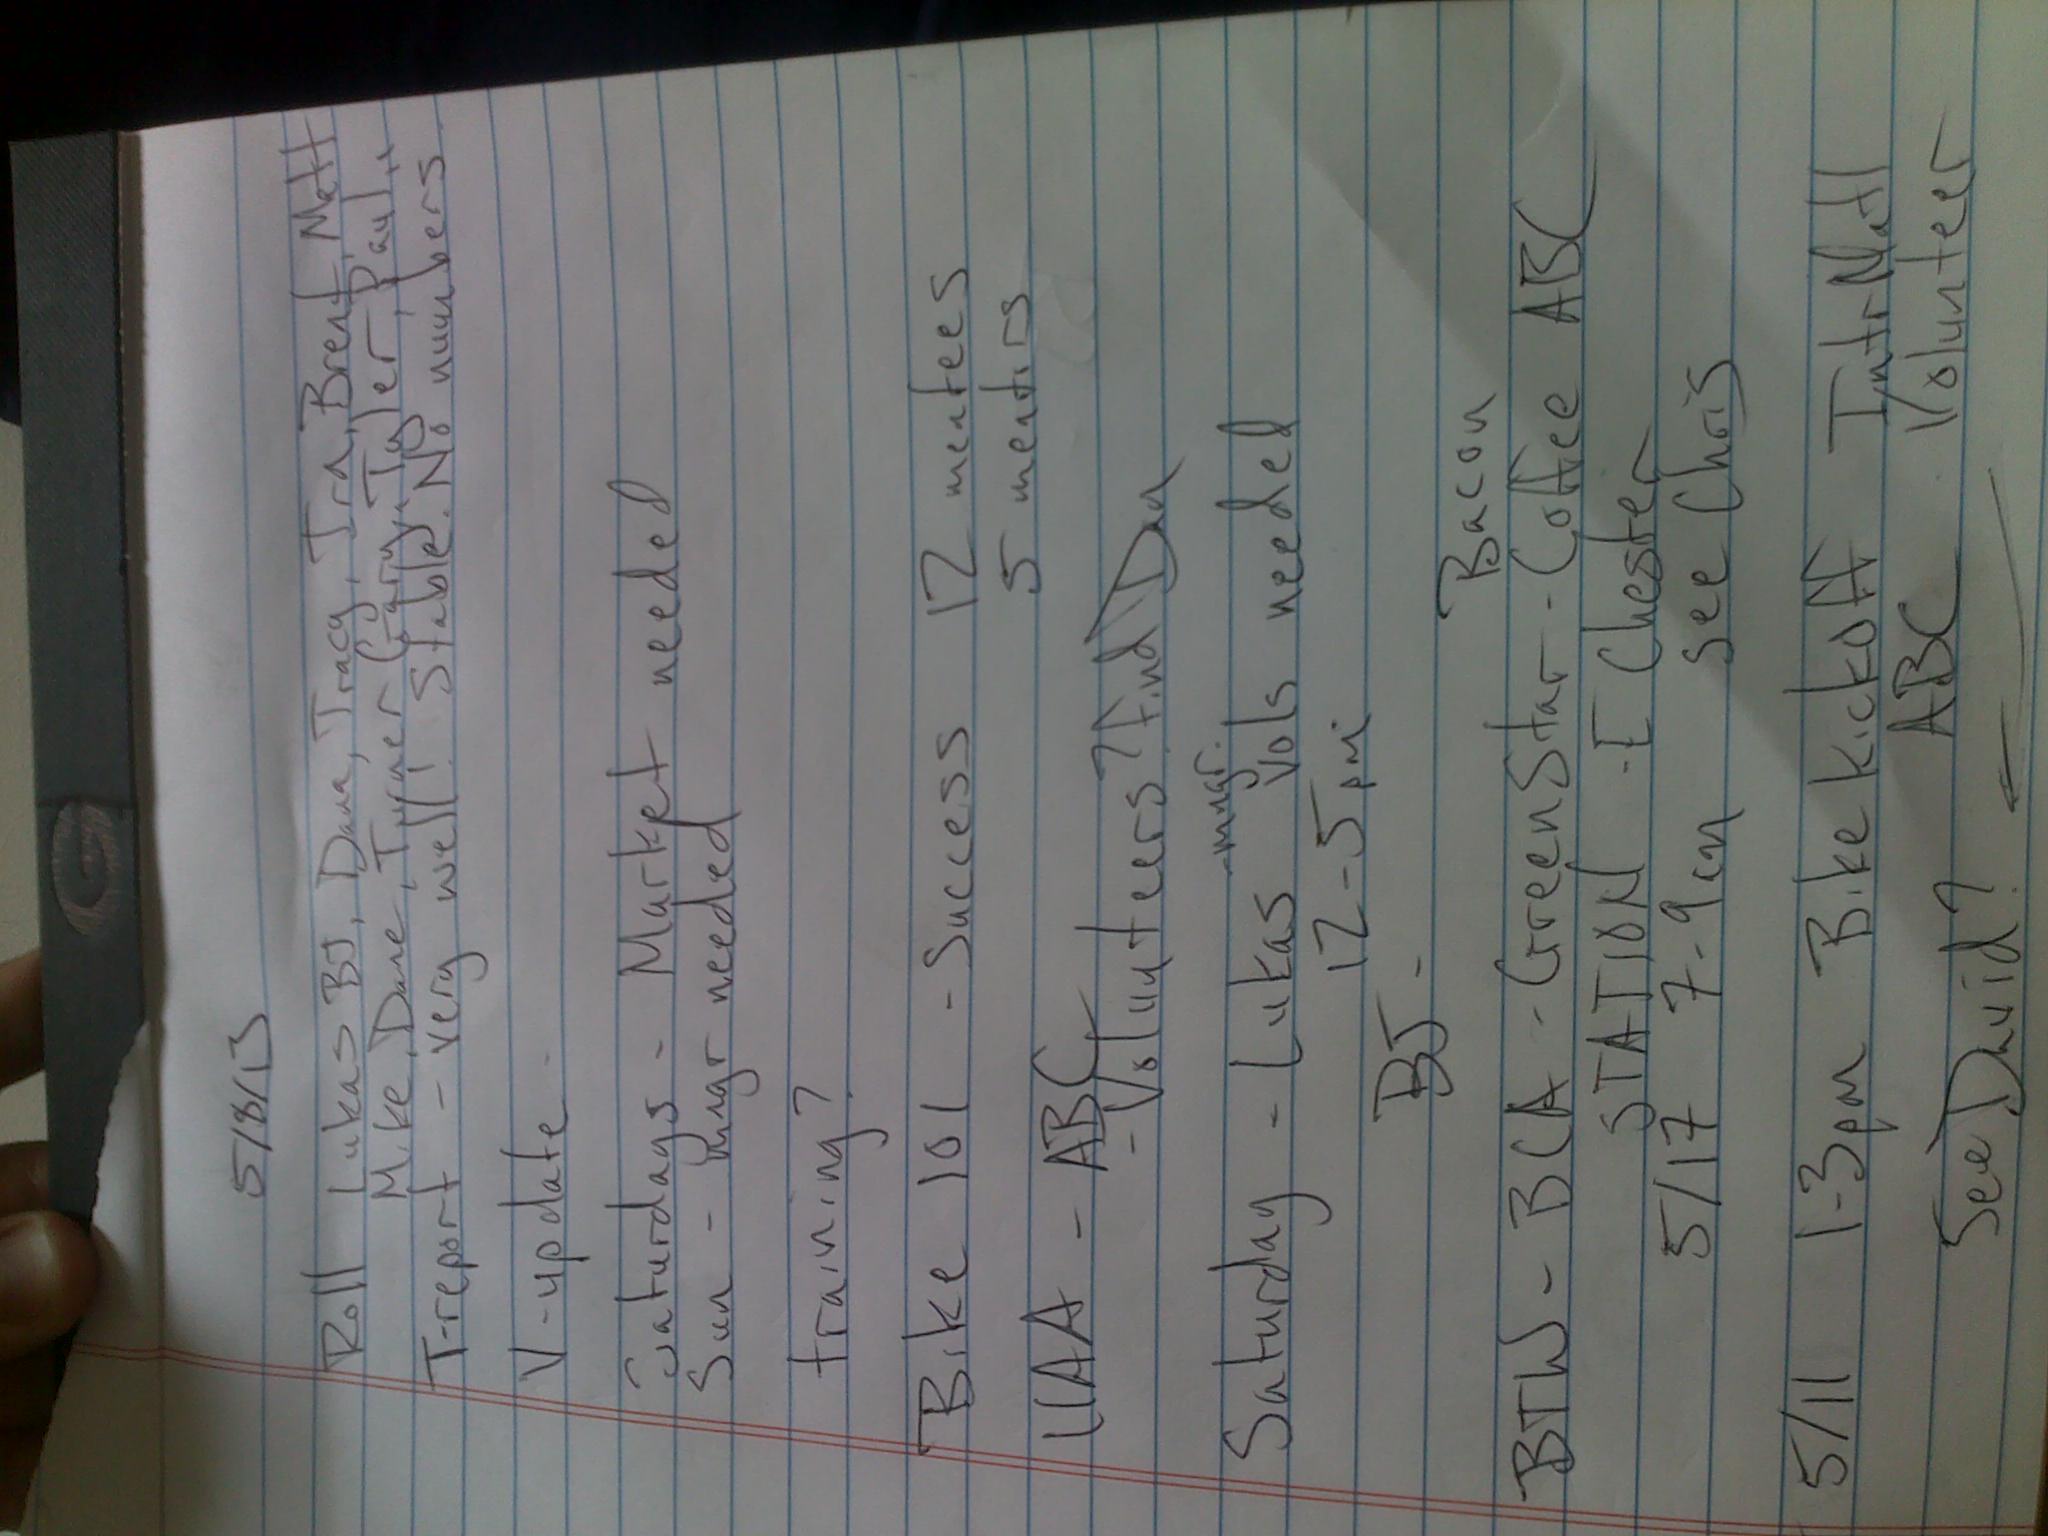 5/8/13
Roll Lukas BJ, Dana, Tracy, Ira, Brent, Matt
Mike, Dane, Turner Gary, Tyler, Paul
T-report - very well! Stable. No numbers
V-update -
Saturdays - Market needed
Sun - mngr needed
training?
Bike 101 - Success 12 mentees
5 mentors
UAA - ABC
- Volunteers? find Dan
- mngr.
Saturday - Lukas Vols needed
12-5pm
BJ -
Bacon
BTW - BCA - GreenStar - Coffee ABC
STATION - E Chester
5/17 7-9am see Chris
5/11 1-3pm Bike Kickoff IntrNatl
ABC Volunteer
See David?